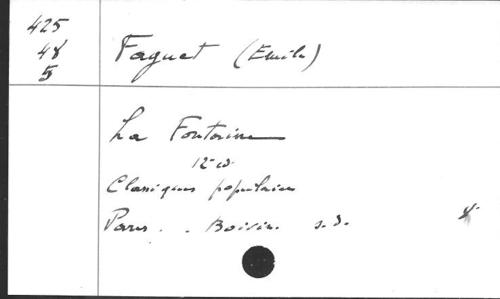 425
48
5
Faguet (Emile)
La Fontaine
12-éd.
Classiques populaires
Paris. . Boivin. s.d.